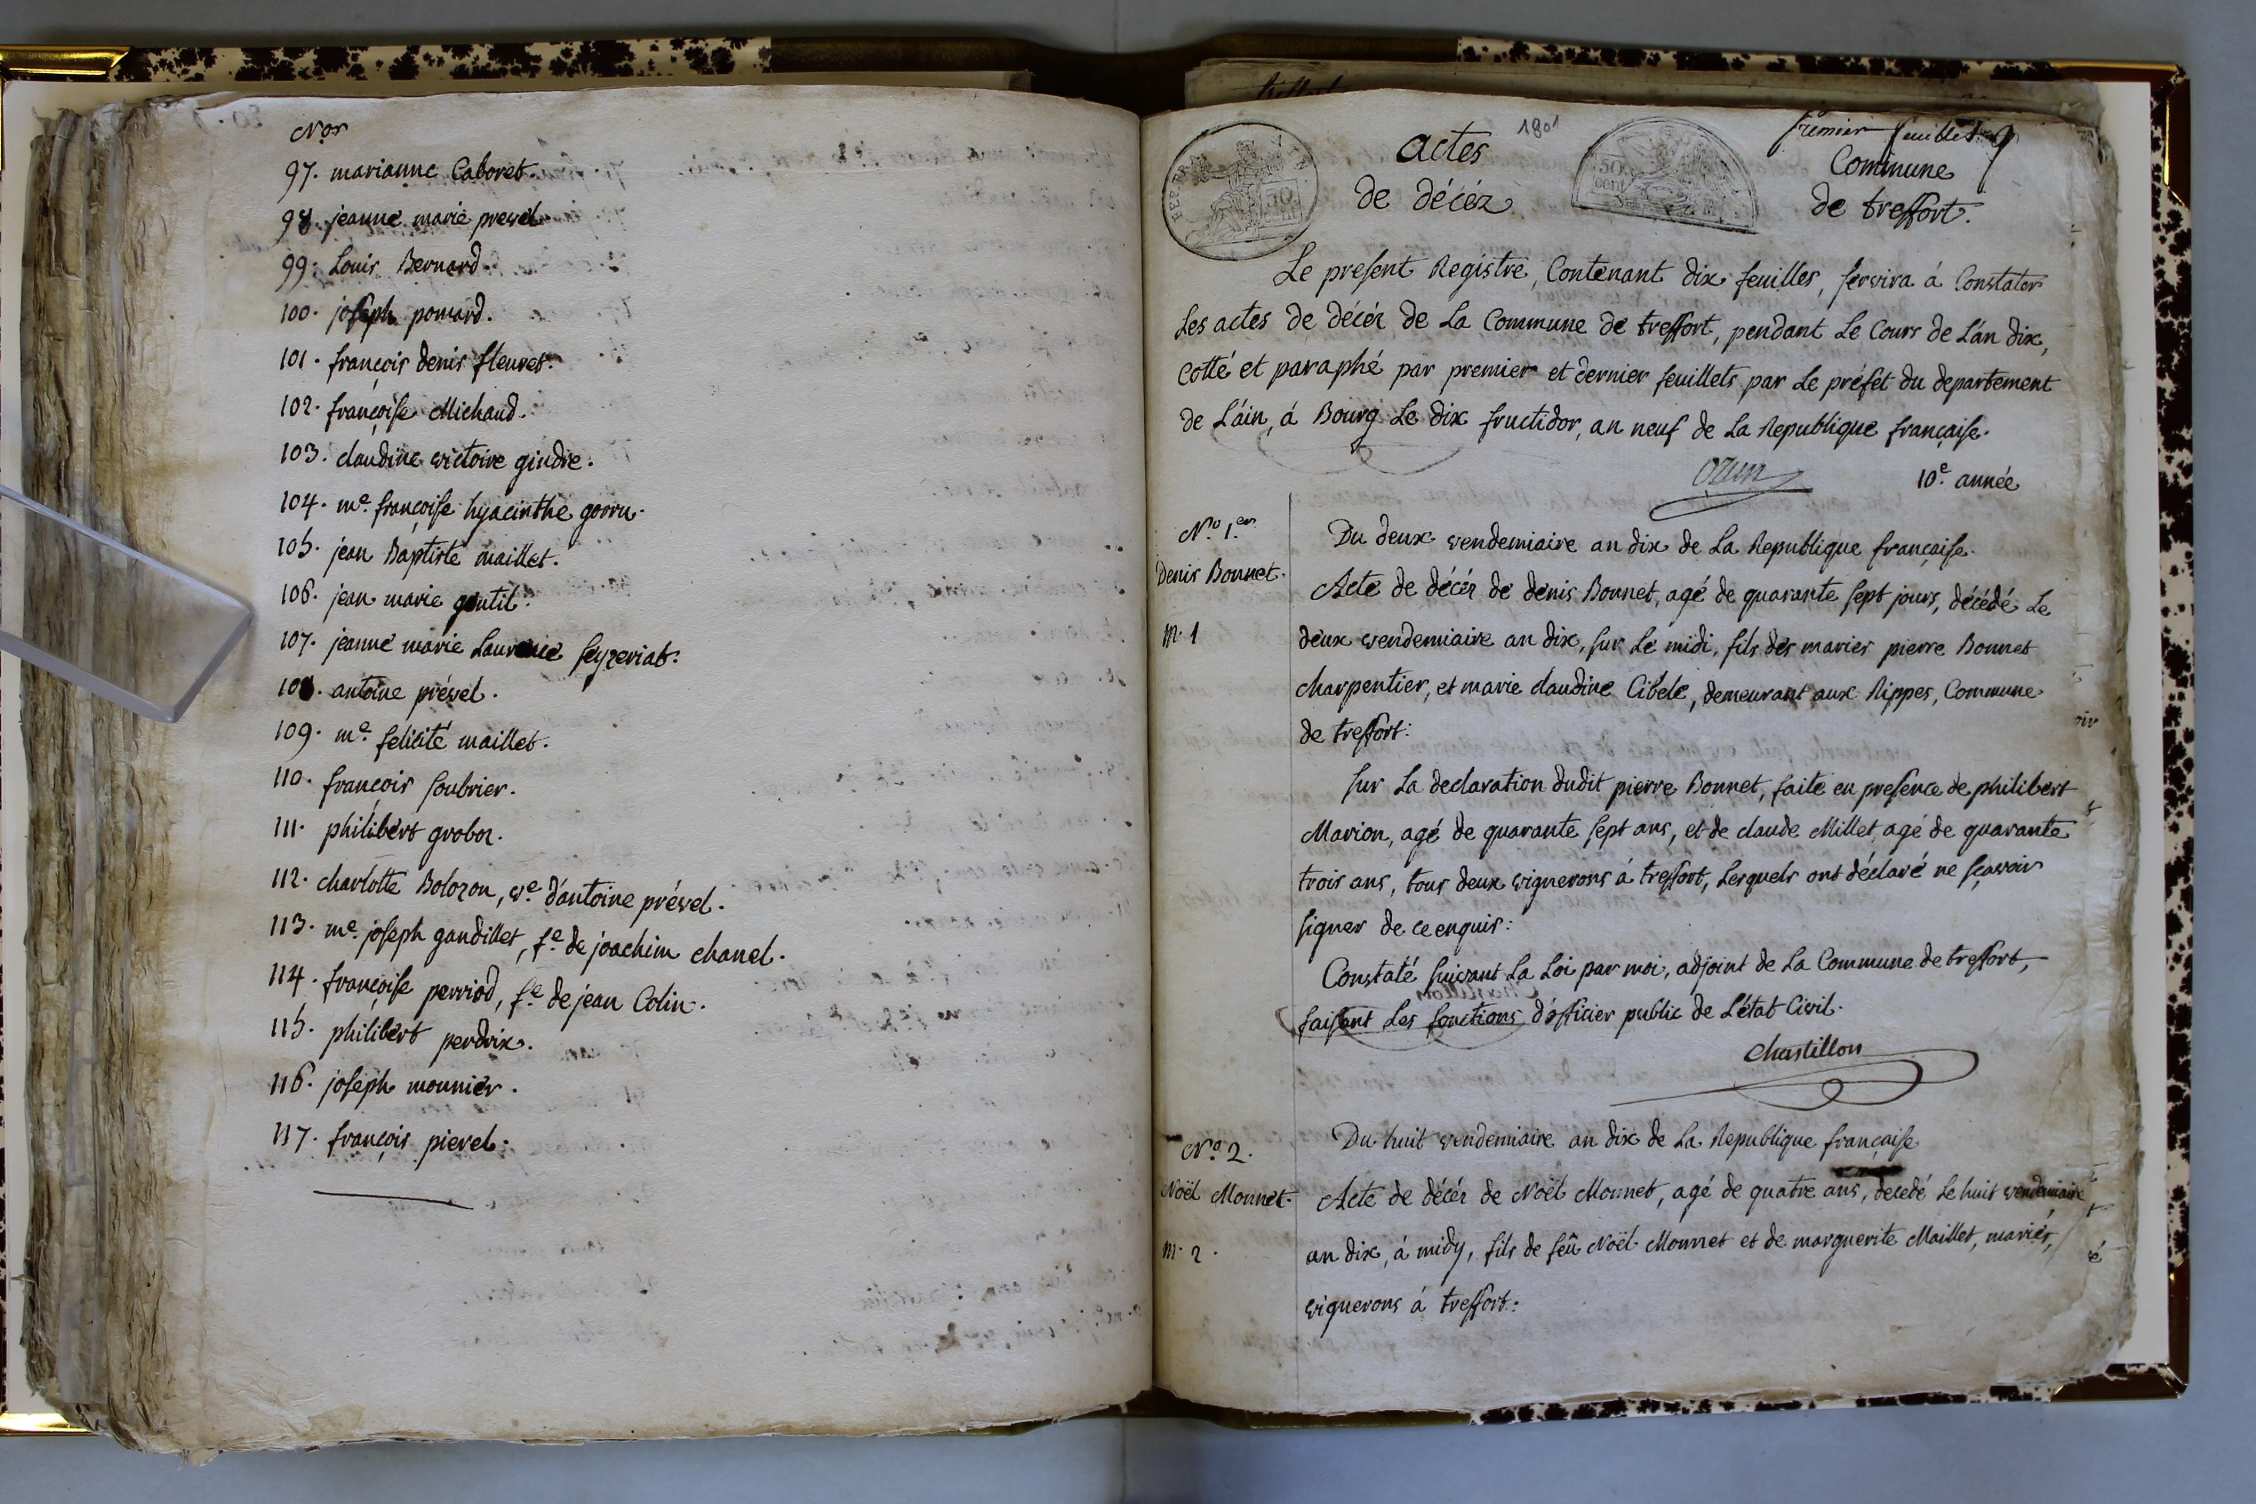 Nos
97. marianne Caboret.
98. jeanne marie prevel
99. Louis Bernard.
100. joseph pomard.
101. françois denis fleuret.
102. françoise Michaud.
103. claudine victoire gindre.
104. me. françoise hyacinthe gorru.
105. jean Baptiste maillet.
106. jean marie gentil.
107. jeanne marie Laurence seyzeriat.
108. antoine prével.
109. me. félicité maillet.
110. françois soubrier.
111. philibert groboz.
112. charlotte Bolozon, ve. d'antoine prével.
113. me. joseph gaudillet, fe. de joachim chanel.
114. françoise perriod, fe. de jean Colin.
115. philibert perdrix.
116. joseph mounier.
117. françois pierel.
1801
actes
de décéz
50
cent
premier feuillet
Commune
de treffort.
Le present Registre, Contenant dix feuilles, servira á Constater
Les actes de décéz de La Commune de treffort, pendant Le Cours de L'an dix,
cotté et paraphé par premier et dernier feuillets par Le préfet du departement
de L'ain, á Bourg Le dix fructidor, an neuf de La Republique française.
Ozun
10e. année
No. 1er.
Denis Bonnet.
m. 1
Du deux vendemiaire an dix de La Republique française.
Acte de décéz de denis Bonnet, agé de quarante sept jours, décédé Le
deux vendemiaire an dix, sur Le midi, fils des mariés pierre Bonnet
charpentier, et marie claudine Cibele, demeurant aux Rippes, Commune
de treffort:
sur La declaration dudit pierre Bonnet, faite en presence de philibert
Marion, agé de quarante sept ans, et de claude Millet agé de quarante
trois ans, tous deux vignerons á treffort, Lesquels ont déclaré ne sçavoir
signer de ce enquis:
Constaté suivant La Loi par moi, adjoint de La Commune de treffort,
faisant Les fonctions d'officier public de L'état Civil.
Chastillon
No. 2.
Noël Monnet.
m. 2.
Du huit vendemiaire an dix de La Republique française
Acte de décéz de Noël Monnet, agé de quatre ans, decedé Le huit vendemiaire
an dix, á midy, fils de feû Noël Monnet et de marguerite Maillet, mariés,
vignerons á treffort: